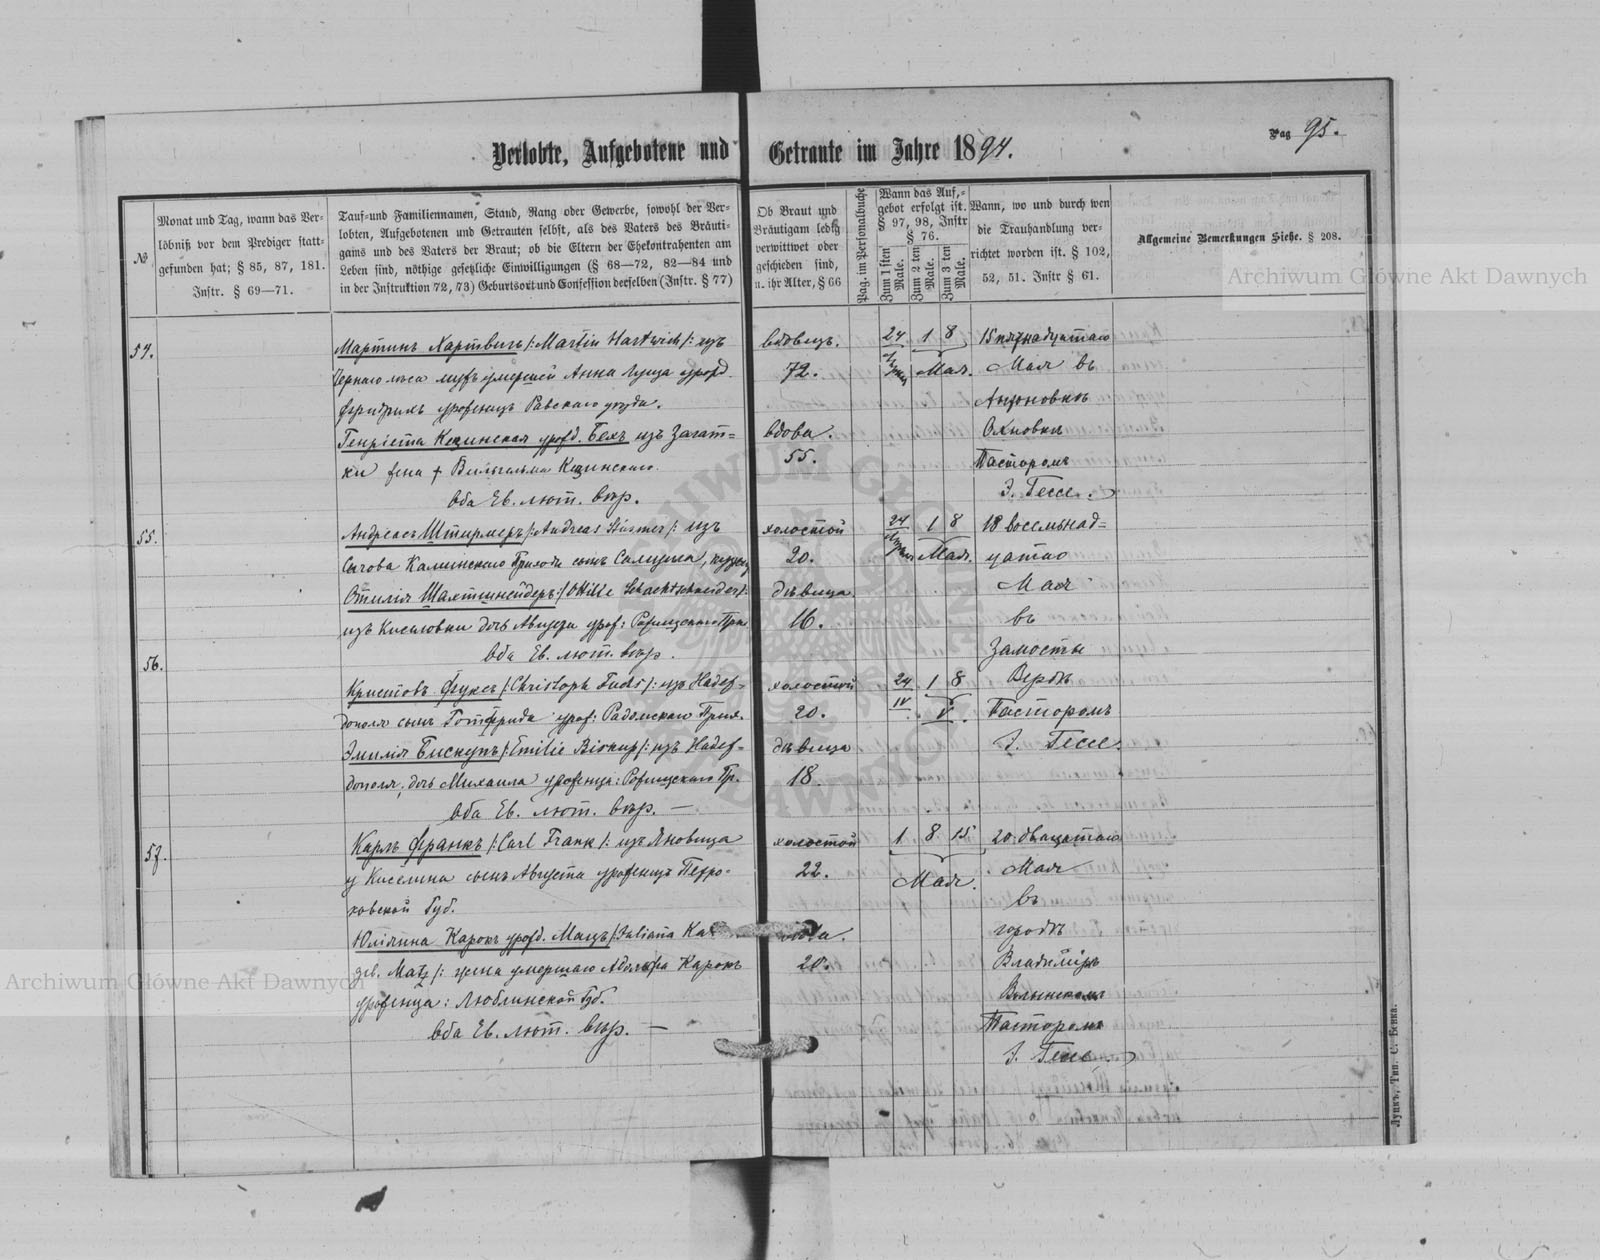 Pag 95.
Verlobte, Aufgebotene und Getraute im Jahre 1894.
№
Monat und Tag, wann das Ver-
löbniß vor dem Prediger statt-
gefunden hat; § 85, 87, 181.
Instr. § 69—71.
Tauf-und Familiennamen, Stand, Rang oder Gewerbe, sowohl der Ver-
lobten, Aufgebotenen und Getrauten selbst, als des Vaters des Bräuti-
gams und des Vaters der Braut; ob die Eltern der Ehekontrahenten am
Leben sind, nöthige gesetzliche Einwilligungen (§ 68—72, 82—84 und
in der Instruktion 72, 73) Geburtsort und Confession derselben (Instr. § 77)
Ob Braut und
Bräutigam ledig
verwittwet oder
geschieden sind,
u. ihr Alter, § 66
Pag. im Personalbuche
Wann das Auf,-
gebot erfolgt ist.
§ 97, 98, Instr
§ 76.
Zum 1 sten
Male.
Zum 2 ten
Male.
Zum 3 ten
Male.
Wann, wo und durch wen
die Trauhandlung ver-
richtet worden ist. § 102,
52, 51. Instr § 61.
Allgemeine Bemerkungen Siehe. § 208.
54.
Мартинъ Хартвигъ /: Martin Hartwich :/ изъ
Чернаго лѣса мужъ умершей Анны Луиза урожд.
Фридрихъ уроженецъ Равскаго уѣзда.
Генріета Кецинская урожд. Бехъ изъ Загат-
ки жена † Вильгельма Кецинскаго.
Оба Ев. лют. вѣр.
вдовецъ.
72.
вдова.
55.
24 1 8
Апрѣля Мая.
15 пятнадцатаго
Мая въ
Антоновкѣ
Охновки
Пасторомъ
Э. Гессе.
55.
Андреасъ Штирмеръ /: Andreas Stürmer :/ изъ
Сычова Калишскаго Прихода сынъ
Отилія Шахтшнейдеръ /: Ottilie Schachtschneider :/
изъ Киселовки дочь Августа урож: Рожищскаго При.
Оба Ев. лют. вѣр.
холостой
20.
дѣвица
16.
24 1 8
Апрѣля Мая.
18 восемьнад-
цатаго
Мая
въ
Замостьи
Вербѣ
Пасторомъ
Э. Гессе.
56.
Кристофъ Фуксъ /: Christoph Fuchs :/ изъ Надеж-
дополя сынъ Готфрида урож: Радомскаго Прих.
Эмилія Бискупъ /: Emilie Biskup :/ изъ Надеж-
дополя, дочь Михаила уроженца: Рожищскаго Пр.
Оба Ев. лют. вѣр. —
холостой
20.
дѣвица
18.
24 1 8
IV V.
57.
Карлъ Франкъ /: Carl Frank :/ изъ Яновица
у Киселина сынъ Августа уроженецъ Петро-
ковской Губ.
Юліянна Карокъ урожд. Мацъ /: Juliana Ka
geb. Matz :/ жена умершаго Адольфа Карокъ
уроженца: Люблинской Губ.
Оба Ев. лют. вѣр. —
холостой
22.
вдова.
20.
1 8 15
Мая.
20. двадцатаго
Мая
въ
городѣ
Владимірѣ
Волынскомъ
Пасторомъ
Э. Гессе.
Луцкъ, Тип. С. Бенка.
Archiwum Główne Akt Dawnych
Archiwum Główne Akt Dawnych
ARCHIWUM GŁÓWNE AKT DAWNYCH